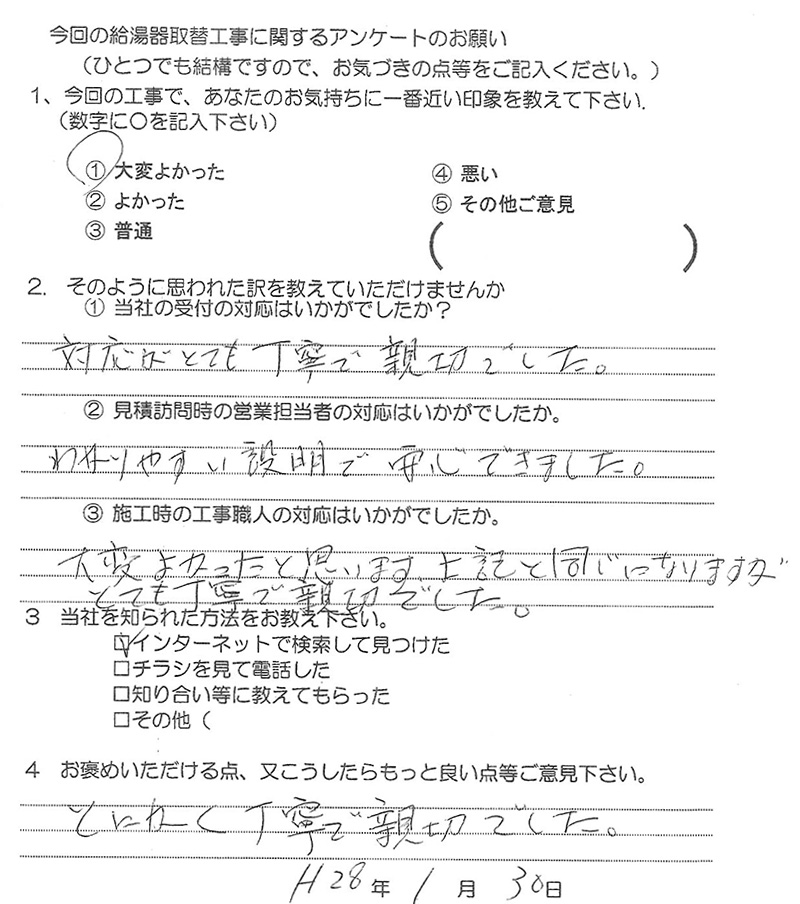 今回の給湯器取替工事に関するアンケートのお願い
（ひとつでも結構ですので、お気づきの点等をご記入ください。）
1、今回の工事で、あなたのお気持ちに一番近い印象を教えて下さい.
（数字に〇を記入下さい）
① 大変よかった ④ 悪い
② よかった ⑤ その他ご意見
③ 普通 （ ）
2. そのように思われた訳を教えていただけませんか
① 当社の受付の対応はいかがでしたか？
対応がとても丁寧で親切でした。
② 見積訪問時の営業担当者の対応はいかがでしたか。
わかりやすい説明で安心できました。
③ 施工時の工事職人の対応はいかがでしたか。
大変よかったと思います 上記と同じになりますが
とても丁寧で親切でした。
3 当社を知られた方法をお教え下さい。
☑インターネットで検索して見つけた
□チラシを見て電話した
□知り合い等に教えてもらった
□その他（
4 お褒めいただける点、又こうしたらもっと良い点等ご意見下さい。
とにかく丁寧で親切でした。
H28年 1月 30日